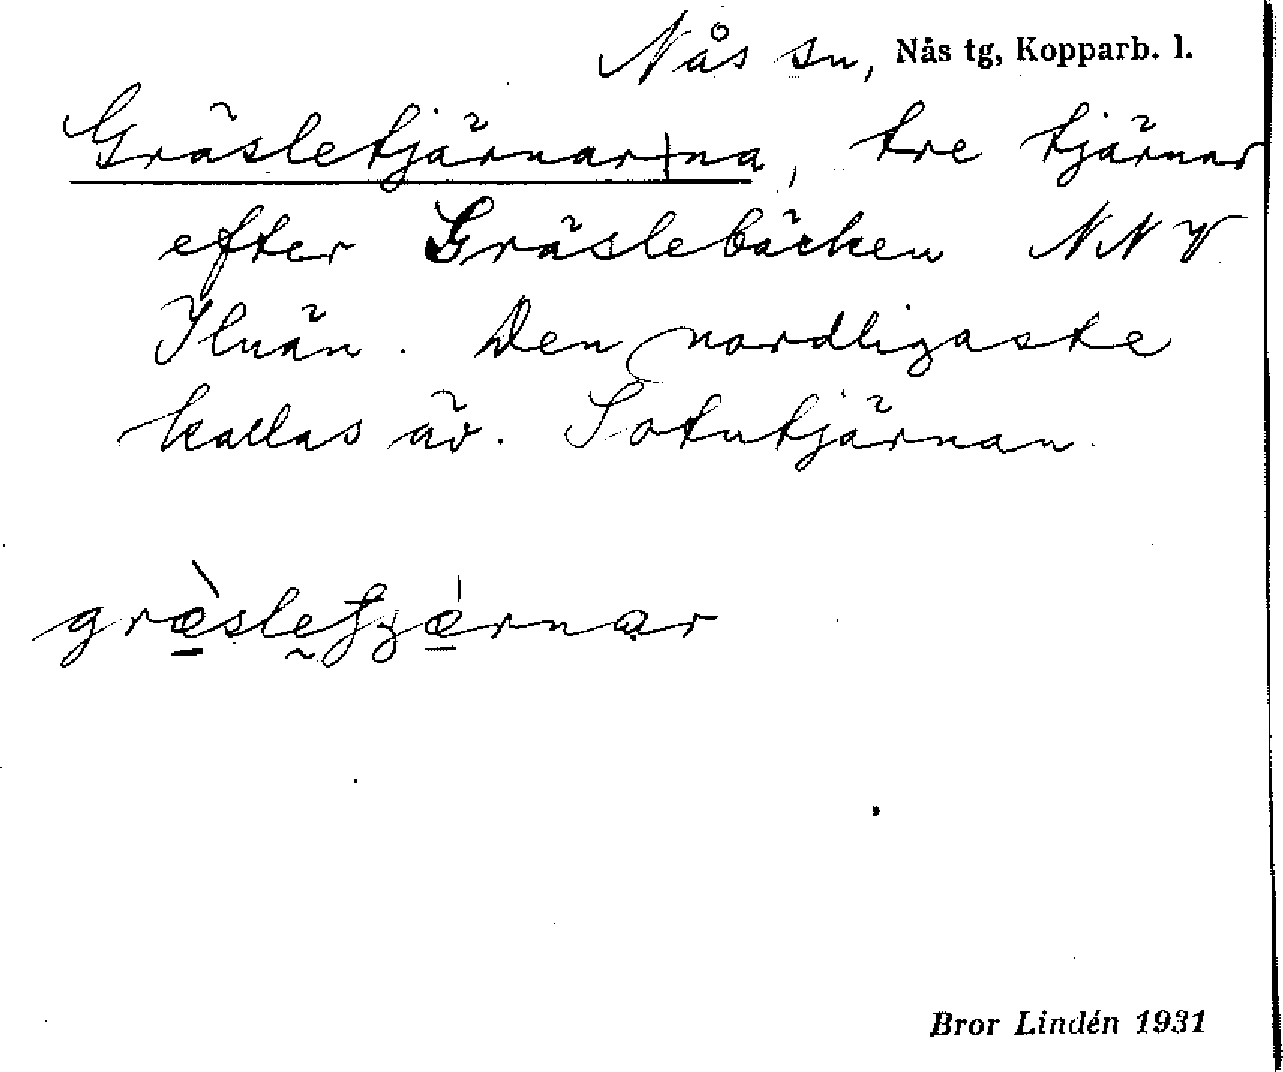 Nås sn, Nås tg, Kopparb. l.
Gräsletjärnar+na, tre tjärnar
efter Gräslebäcken NNV
Ilnän. Den nordligaste
kallas äv. Sotntjärnan.
græ̀sletjǽrnar
Bror Lindén 1931